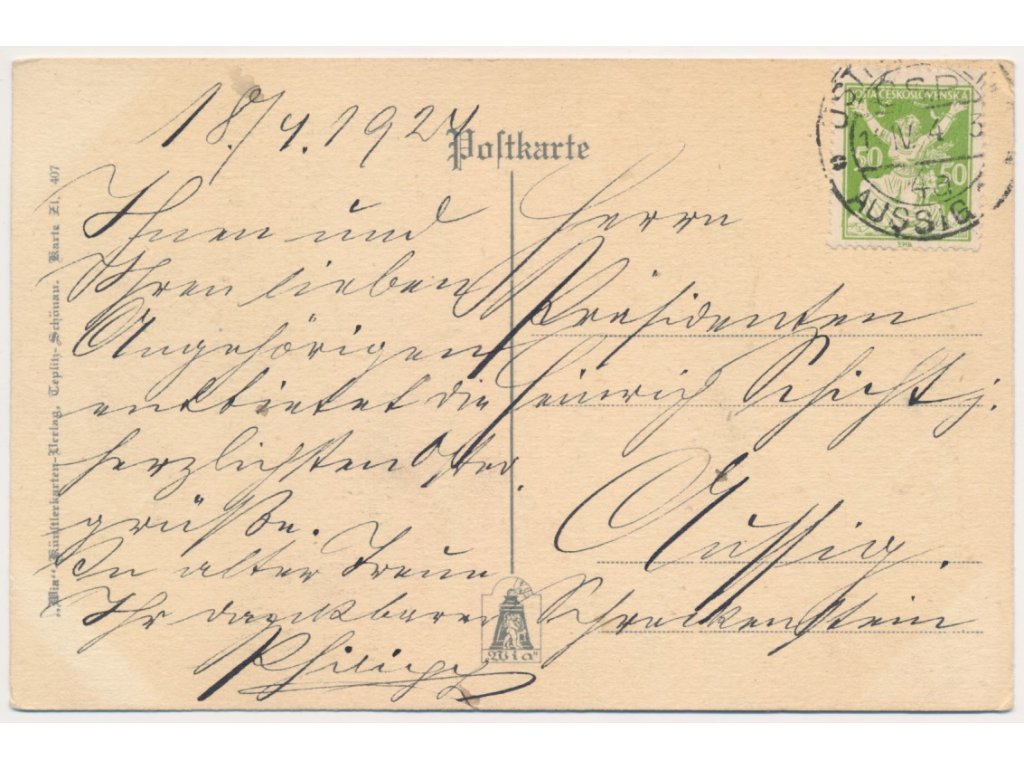 18/4. 1924
Postkarte
Ihnen und
Ihren lieben
Angehörigen
entbietet die
herzlichsten Oster-
grüße.
In alter Treue
Ihr dankbarer
Philipp
Herrn
Präsidenten
Heinrich Schicht j.
Aussig.
Schreckenstein
"Wia"
„Wia" Künstlerkarten-Verlag, Teplitz-Schönau. Karte Zl. 407
POŠTA ČESKOSLOVENSKÁ
50 50
ÚSTÍ
ČSR
IV. 4
AUSSIG